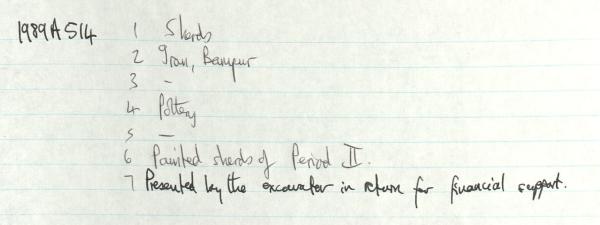 1989A514 1 Sherds
2 Iran, Bampur
3 -
4 Pottery
5 -
6 Painted sherds of Period II.
7 Presented by the excavator in return for financial support.